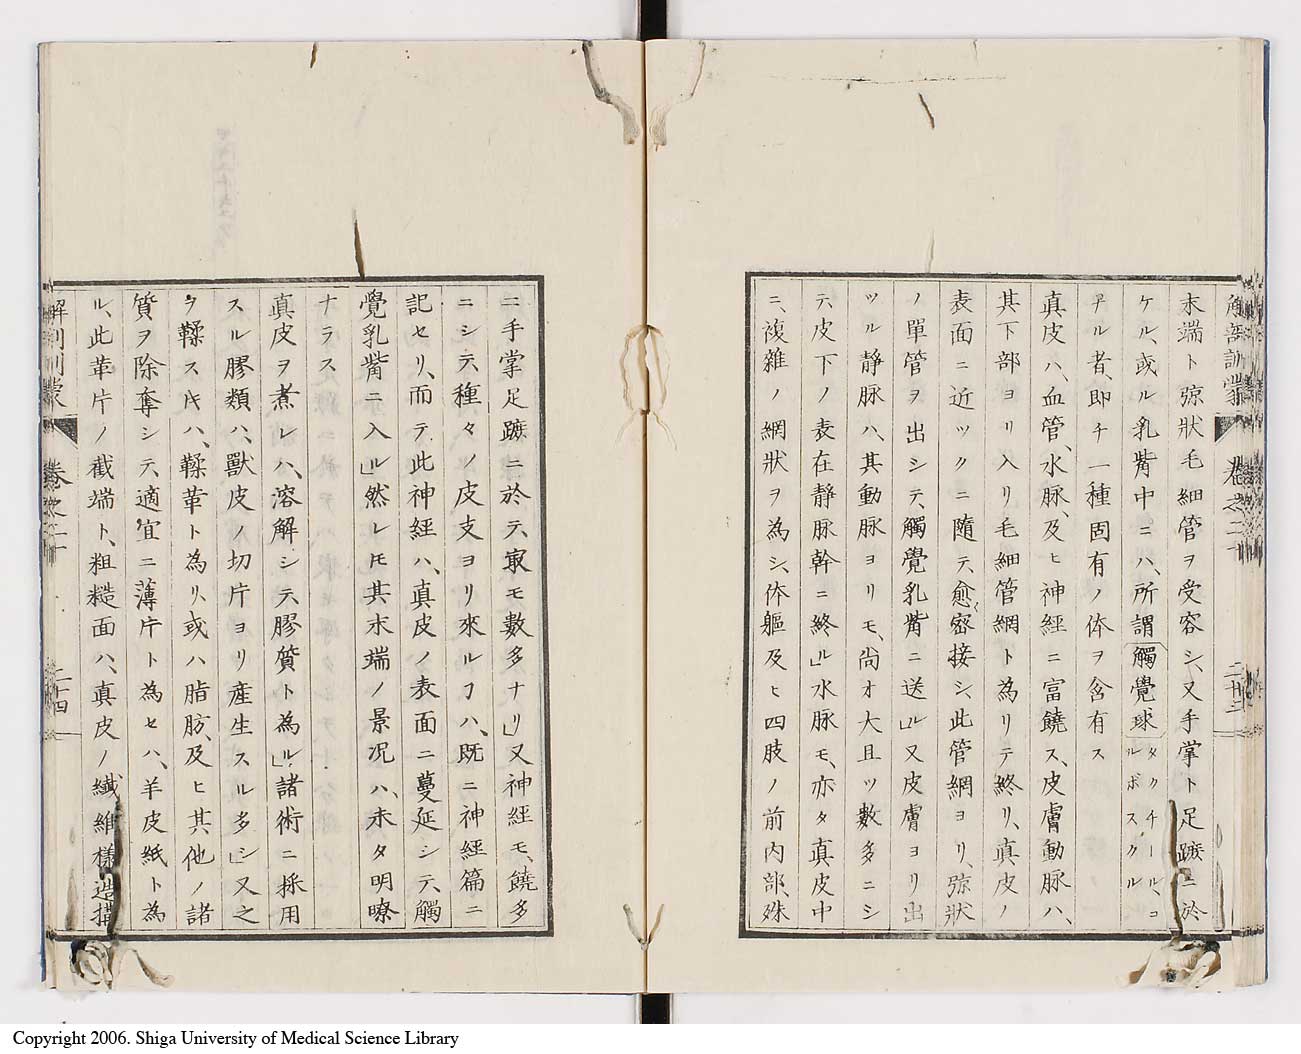 解剖訓蒙 卷之二十 二十三
末端ト弶狀毛細管ヲ受容シ、又手掌ト足蹠ニ於
ケル、或ル乳觜中ニハ、所謂觸覺球タクチールコルボスクルル
ヲル者、即チ一種固有ノ体ヲ含有ス
真皮ハ、血管、水脉、及ヒ神經ニ富饒ス、皮膚動脉ハ、
其下部ヨリ入リ毛細管網ト為リテ終リ、真皮ノ
表面ニ近ツクニ隨テ、愈〻密接シ、此管網ヨリ、弶狀
ノ單管ヲ出シテ、觸覺乳觜ニ送ル」又皮膚ヨリ出
ツル靜脉ハ、其動脉ヨリモ、尚オ大且ツ數多ニシ
テ、皮下ノ表在靜脉幹ニ終ル」水脉モ、亦タ真皮中
ニ、複雜ノ網狀ヲ為シ、体軀及ヒ四肢ノ前内部、殊
ニ手掌足蹠ニ於テ、冣モ數多ナリ」又神經モ、饒多
ニシテ、種々ノ皮支ヨリ來ルヿハ、既ニ神經篇ニ
記セリ、而テ此神經ハ、真皮ノ表面ニ蔓延シテ、觸
覺乳觜ニ入ル」然レ𪜈其末端ノ景况ハ、未タ明瞭
ナラス
真皮ヲ煮レハ、溶解シテ膠質ト為ル」諸術ニ採用
スル膠類ハ、獸皮ノ切片ヨリ産生スル多シ」又之
ヲ鞣スキハ、鞣革ト為リ、或ハ脂肪、及ヒ其他ノ諸
質ヲ除奪シテ、適宜ニ薄片ト為セハ、羊皮紙ト為
ル、此革片ノ截端ト、粗糙面ハ、真皮ノ纎維樣造搆
解剖訓蒙 卷之二十 二十四
Copyright 2006. Shiga University of Medical Science Library